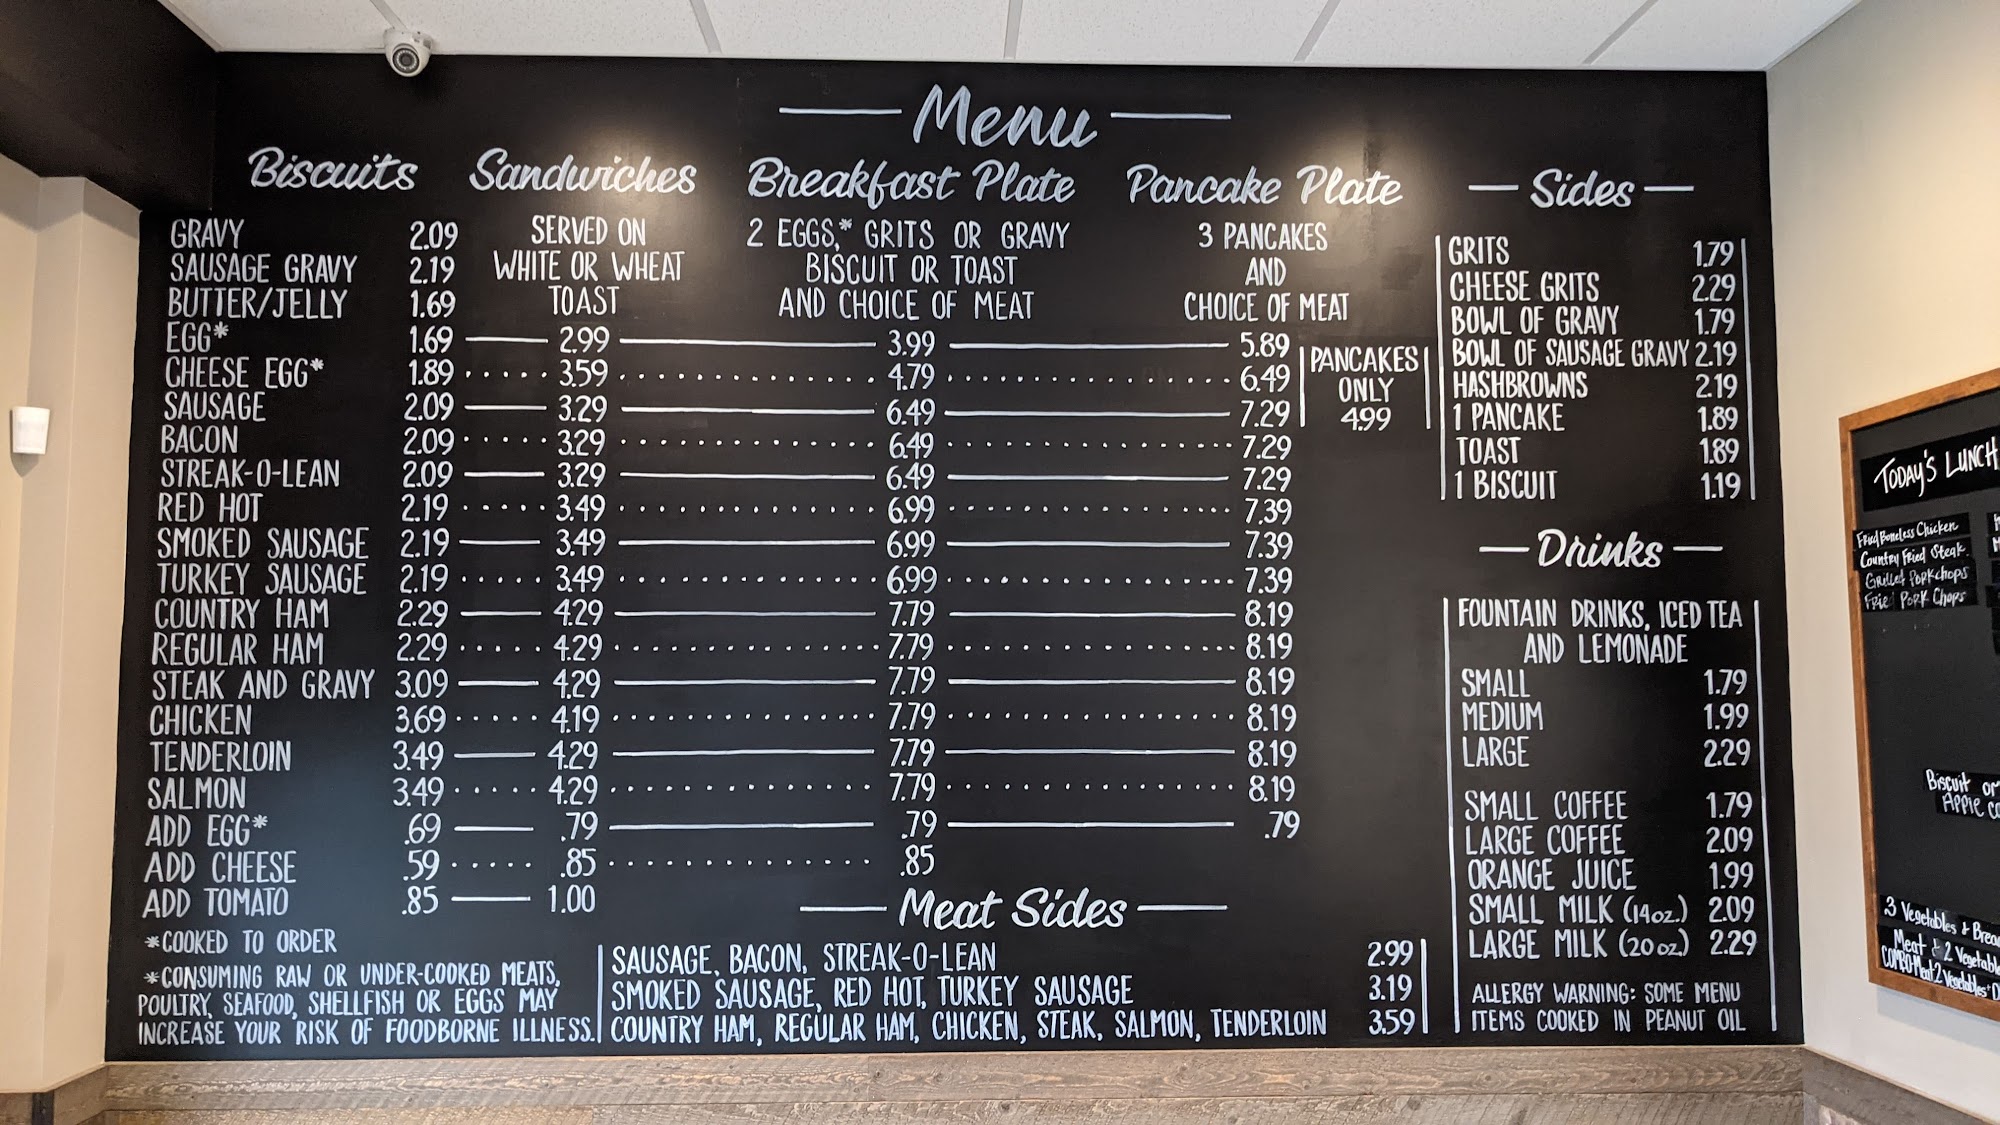 Menu
Biscuits Sandwiches Breakfast Plate Pancake Plate
SERVED ON
WHITE OR WHEAT
TOAST
2 EGGS,* GRITS OR GRAVY
BISCUIT OR TOAST
AND CHOICE OF MEAT
3 PANCAKES
AND
CHOICE OF MEAT
GRAVY 2.09
SAUSAGE GRAVY 2.19
BUTTER/JELLY 1.69
EGG* 1.69 2.99 3.99 5.89
CHEESE EGG* 1.89 3.59 4.79 6.49
SAUSAGE 2.09 3.29 6.49 7.29
BACON 2.09 3.29 6.49 7.29
STREAK-O-LEAN 2.09 3.29 6.49 7.29
RED HOT 2.19 3.49 6.99 7.39
SMOKED SAUSAGE 2.19 3.49 6.99 7.39
TURKEY SAUSAGE 2.19 3.49 6.99 7.39
COUNTRY HAM 2.29 4.29 7.79 8.19
REGULAR HAM 2.29 4.29 7.79 8.19
STEAK AND GRAVY 3.09 4.29 7.79 8.19
CHICKEN 3.69 4.19 7.79 8.19
TENDERLOIN 3.49 4.29 7.79 8.19
SALMON 3.49 4.29 7.79 8.19
ADD EGG* .69 .79 .79 .79
ADD CHEESE .59 .85 .85
ADD TOMATO .85 1.00
*COOKED TO ORDER
*CONSUMING RAW OR UNDER-COOKED MEATS,
POULTRY, SEAFOOD, SHELLFISH OR EGGS MAY
INCREASE YOUR RISK OF FOODBORNE ILLNESS.
PANCAKES
ONLY
4.99
Meat Sides
SAUSAGE, BACON, STREAK-O-LEAN 2.99
SMOKED SAUSAGE, RED HOT, TURKEY SAUSAGE 3.19
COUNTRY HAM, REGULAR HAM, CHICKEN, STEAK, SALMON, TENDERLOIN 3.59
Sides
GRITS 1.79
CHEESE GRITS 2.29
BOWL OF GRAVY 1.79
BOWL OF SAUSAGE GRAVY 2.19
HASHBROWNS 2.19
1 PANCAKE 1.89
TOAST 1.89
1 BISCUIT 1.19
Drinks
FOUNTAIN DRINKS, ICED TEA
AND LEMONADE
SMALL 1.79
MEDIUM 1.99
LARGE 2.29
SMALL COFFEE 1.79
LARGE COFFEE 2.09
ORANGE JUICE 1.99
SMALL MILK (14oz.) 2.09
LARGE MILK (20oz.) 2.29
ALLERGY WARNING: SOME MENU
ITEMS COOKED IN PEANUT OIL
TODAY'S LUNCH
Fried Boneless Chicken
Country Fried Steak
Grilled Porkchops
Fried Pork Chops
Biscuit or
Apple
3 Vegetables +
Meat + 2
COMBO-Meat 2 Vegetables+